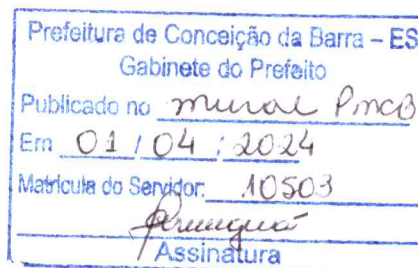 Prefeitura de Conceição da Barra – ES
Gabinete do Prefeito
Publicado no mural PMCB
Em 01 / 04 / 2024
Matrícula do Servidor: 10503
Assinatura